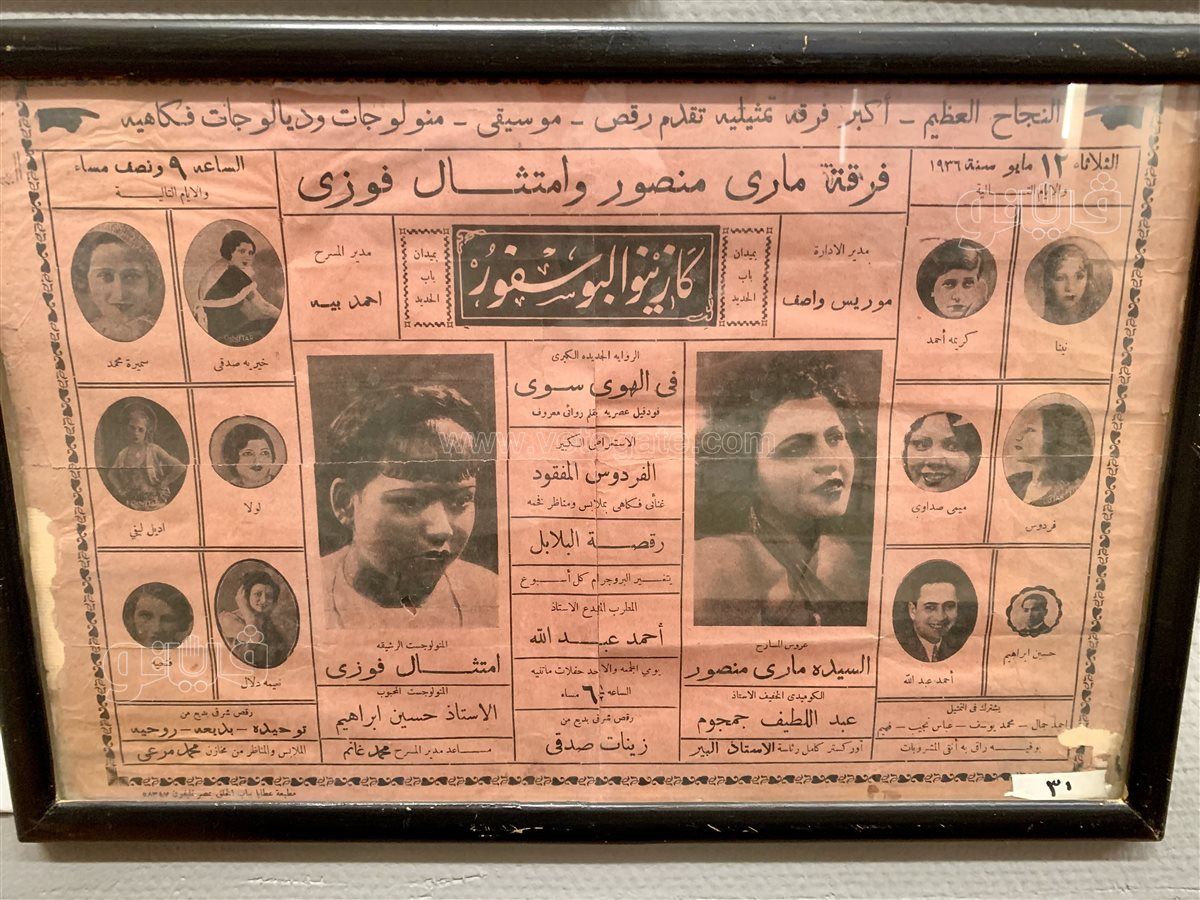 النجاح العظيم - أكبر فرقه تمثيليه تقدم رقص - موسيقى - منولوجات وديالوجات فكاهيه
الثلاثاء ١٢ مايو سنة ١٩٣٦
والايام التالية
فرقة مارى منصور وامتثال فوزى
الساعه ٩ ونصف مساء
والايام التالية
مدير الادارة
موريس واصف
بميدان
باب
الحديد
كازينو البوسفور
بميدان
باب
الحديد
مدير المسرح
احمد بيه
نينا
كريمه أحمد
فردوس
ميمى صداوى
حسين ابراهيم
أحمد عبد الله
يشترك فى التمثيل
احمد جمال - محمد يوسف - عباس نجيب - فهيم
بوفيه راق به أنقى المشروبات
عروس المسارح
السيده مارى منصور
الكوميدى الخفيف الاستاذ
عبد اللطيف جمجوم
أوركستر كامل رئاسة الاستاذ البير
الروايه الجديده الكبرى
فى الهوى سوى
فودفيل عصريه بقلم روائى معروف
الاستعراض الكبير
الفردوس المفقود
غنائى فكاهى بملابس ومناظر فخمه
رقصة البلابل
يتغير البروجرام كل أسبوع
المطرب المبدع الاستاذ
أحمد عبد الله
يومى الجمعه والاحد حفلات ماتنيه
الساعه ٦ مساء
رقص شرقى بديع من
زينات صدقى
المنولوجست الرشيقه
امتثال فوزى
المنولوجست المحبوب
الاستاذ حسين ابراهيم
مساعد مدير المسرح محمد غانم
خيريه صدقى
سميرة محمد
لولا
اديل ليفي
نعيمه دلال
رقص شرقى بديع من
توحيده - بديعه - روحيه
الملابس والمناظر من مخازن محمد مرعى
مطبعة عطايا بباب الخلق مصر تليفون
٣٠
فيتو
www.vetogate.com
فيتو